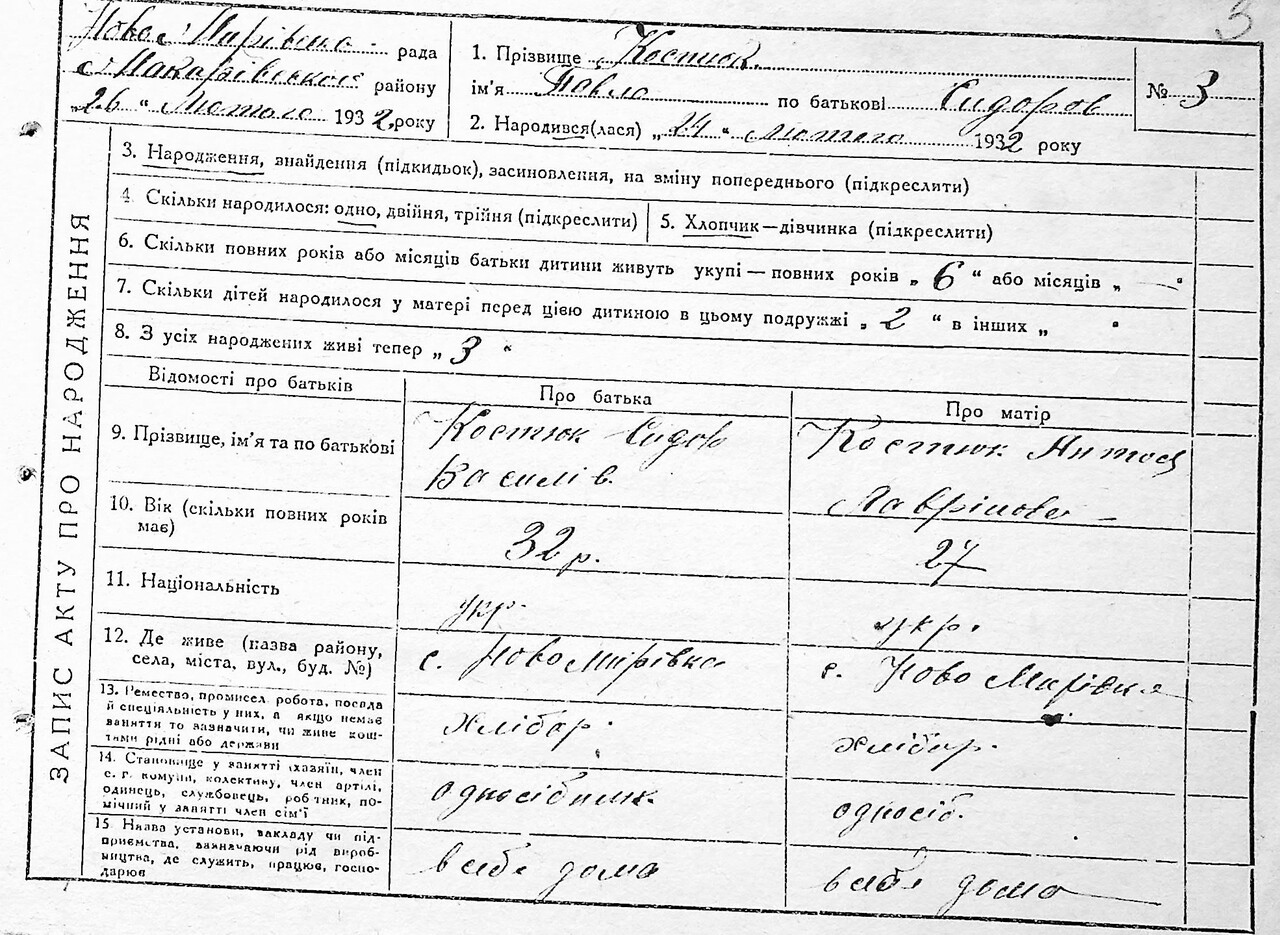 3
Ново Мирівська рада
Макарівського району
„26" Лютого 1932 року
1. Прізвище Костюк
ім'я Павло по батькові Сидоров
2. Народився(лася) „24" лютого 1932 року
№ 3
ЗАПИС АКТУ ПРО НАРОДЖЕННЯ
3. Народження, знайдення (підкидьок), засиновлення, на зміну попереднього (підкреслити)
4. Скільки народилося: одно, двійня, трійня (підкреслити)
5. Хлопчик—дівчинка (підкреслити)
6. Скільки повних років або місяців батьки дитини живуть укупі — повних років „ 6 " або місяців „ — "
7. Скільки дітей народилося у матері перед цією дитиною в цьому подружжі „ 2 " в інших „ "
8. З усіх народжених живі тепер „ 3 "
Відомості про батьків
Про батька
Про матір
9. Прізвище, ім'я та по батькові
Костюк Сидор
Василів.
Костюк Антося
Лаврінова
10. Вік (скільки повних років
має)
32 р.
27
11. Національність
укр.
укр.
12. Де живе (назва району,
села, міста, вул., буд. №)
с. Ново Мирівка
с. Ново Мирівка
13. Ремество, промисел, робота, посада
й спеціяльність у них, а якщо немає
заняття то зазначити, чи живе кош-
тами рідні або держави
хлібор.
хлібор.
14. Становище у занятті (хазяїн, член
с. г. комуни, колективу, член артілі,
одинець, службовець, робітник, по-
мічний у занятті член сім'ї
односібник.
односіб.
15 Назва установи, закладу чи під-
приємства, зазначаючи рід вироб-
ництва, де служить, працює, госпо-
дарює
в себе дома
в себе дома